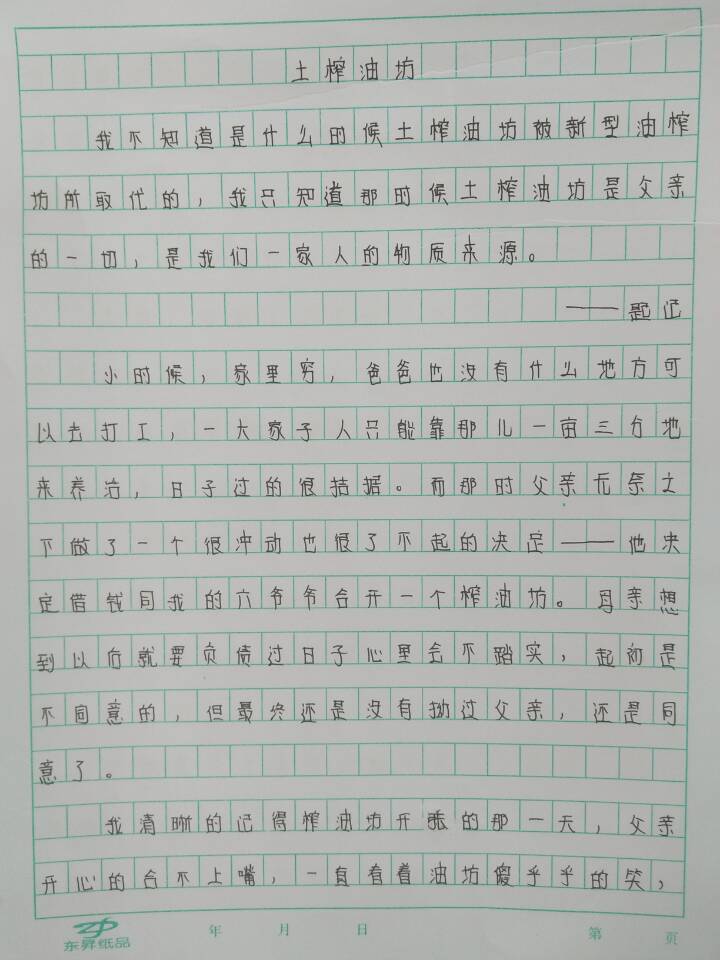 土榨油坊
我不知道是什么时候土榨油坊被新型油榨
坊所取代的，我只知道那时候土榨油坊是父亲
的一切，是我们一家人的物质来源。
——题记
小时候，家里穷，爸爸也没有什么地方可
以去打工，一大家子人只能靠那几亩三分地
来养活，日子过的很拮据。而那时父亲无奈之
下做了一个很冲动也很了不起的决定——他决
定借钱同我的六爷爷合开一个榨油坊。母亲想
到以后就要负债过日子心里会不踏实，起初是
不同意的，但最终还是没有拗过父亲，还是同
意了。
我清晰的记得榨油坊开张的那一天，父亲
开心的合不上嘴，一直看着油坊傻乎乎的笑，
东昇纸品
年 月 日 第 页